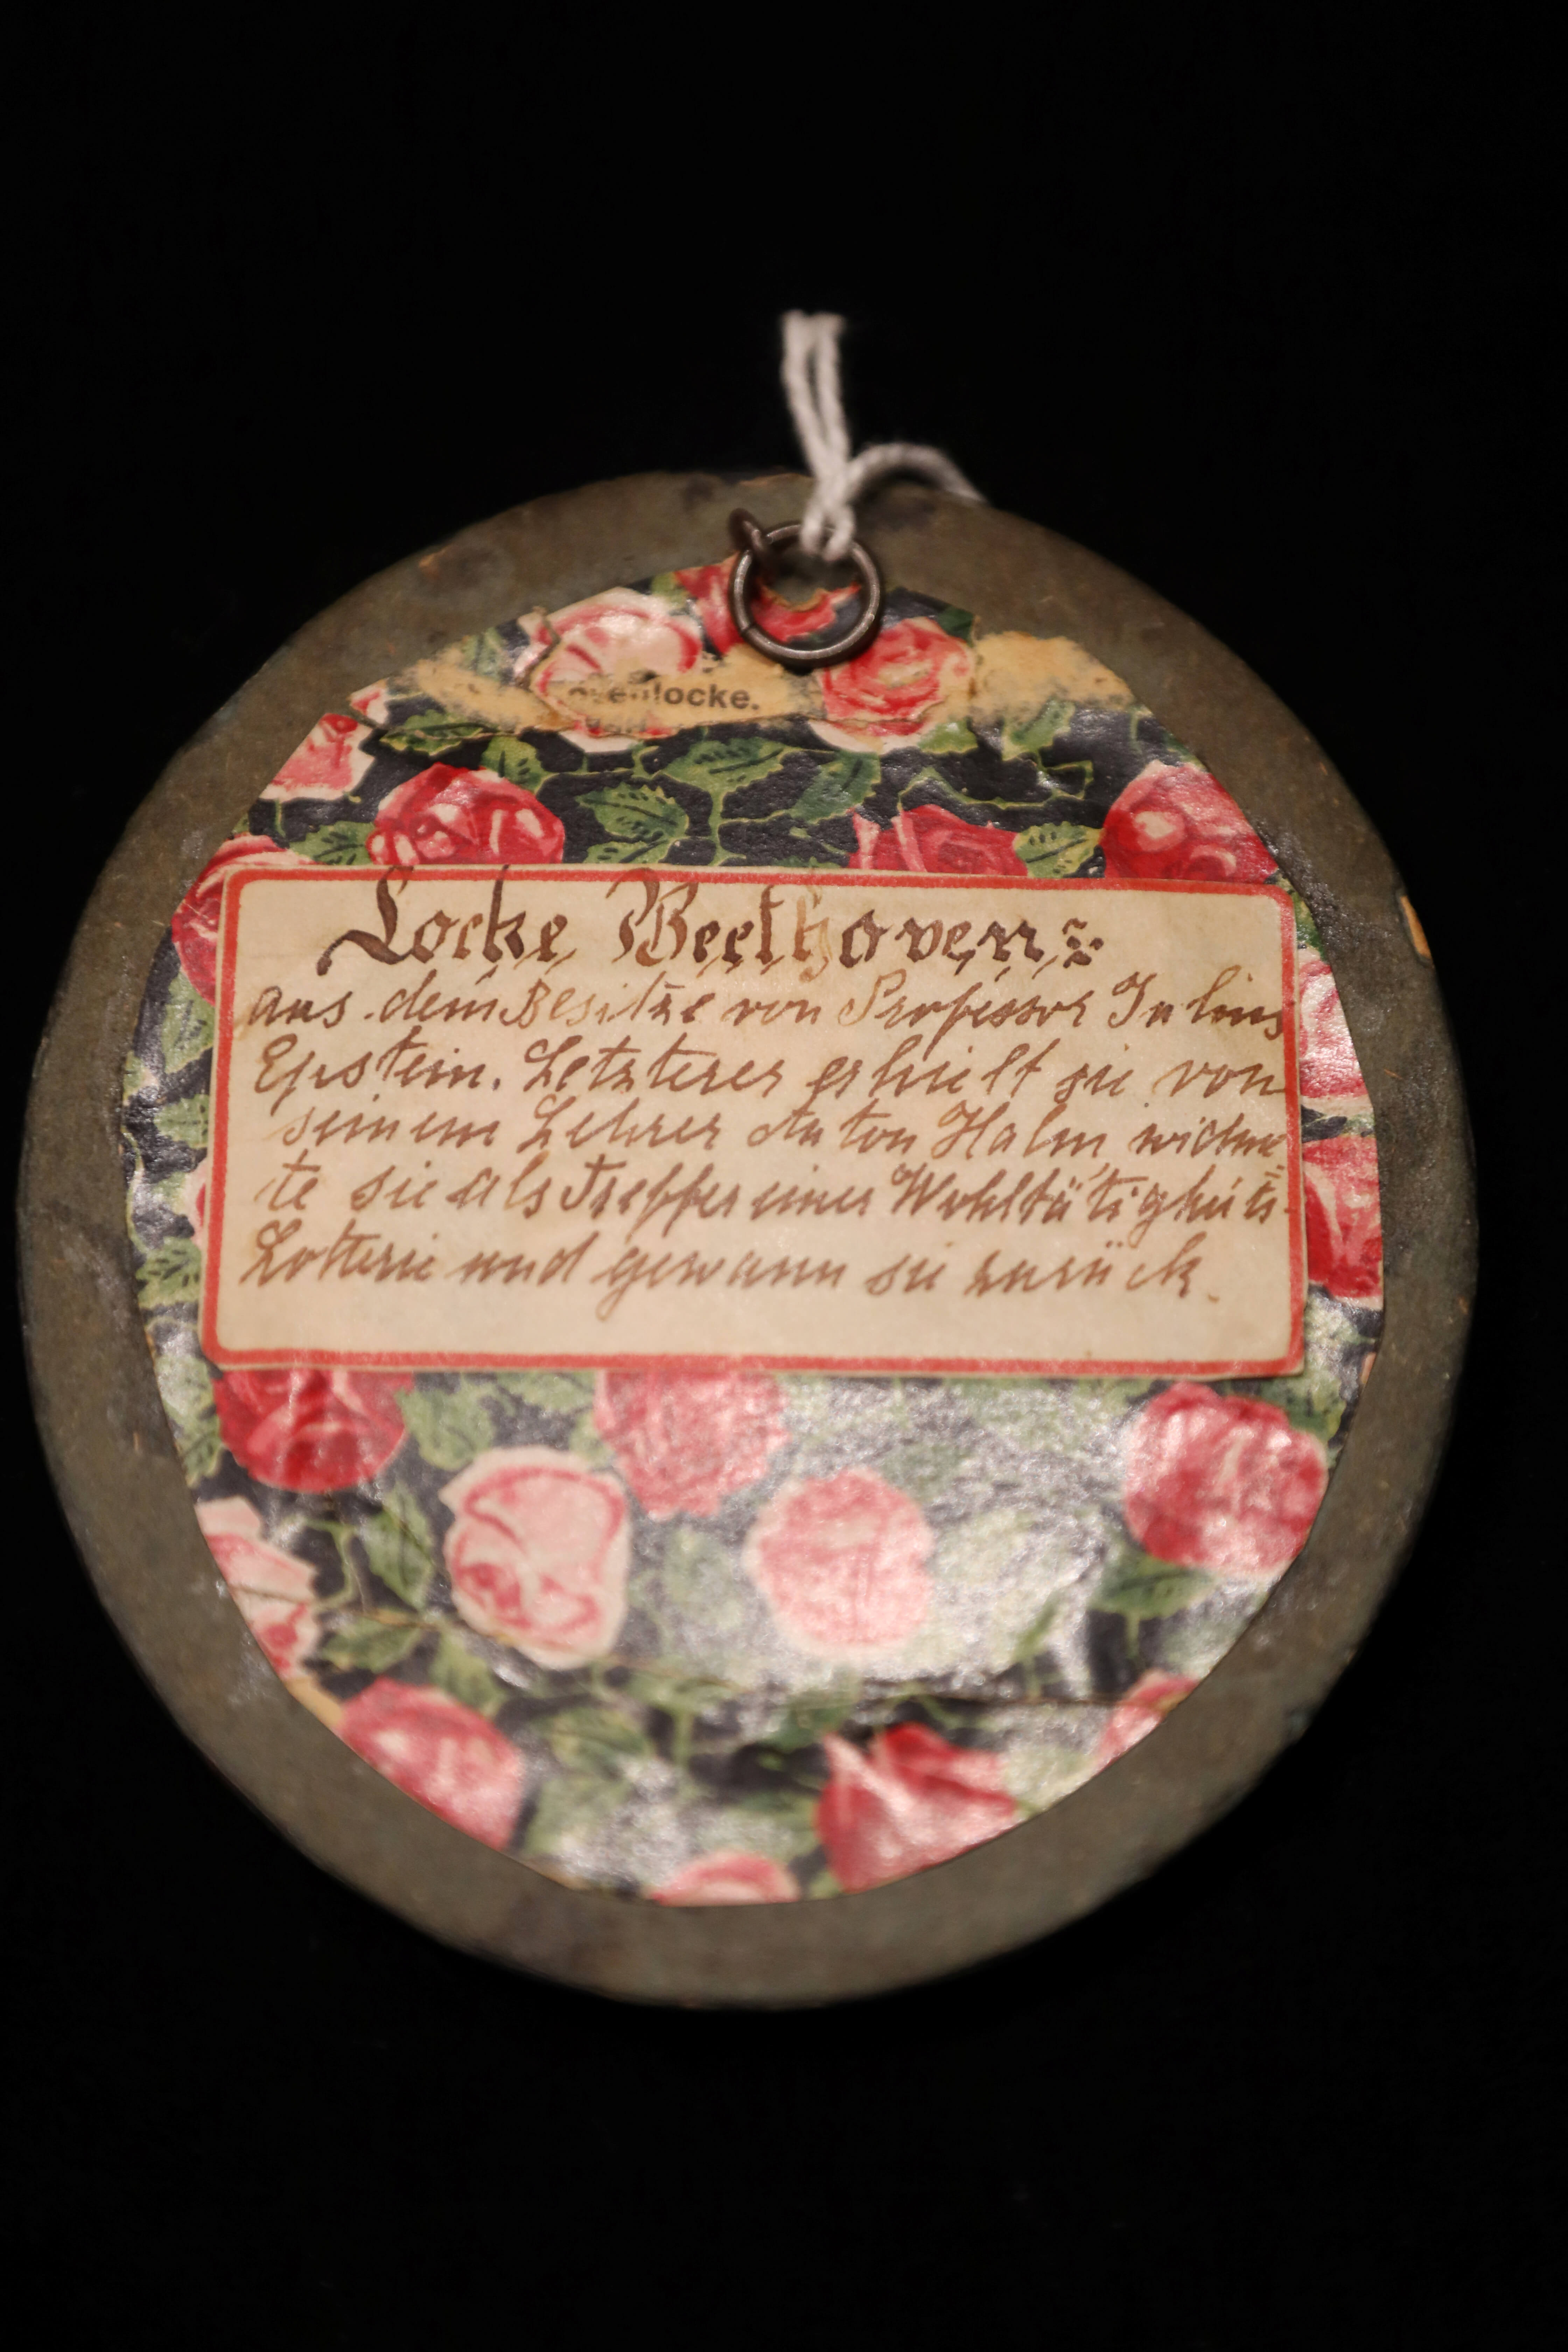 locke.
Locke Beethovens
aus dem Besitze von Professor Julius
Epstein. Letzterer erhielt sie von
seinem Lehrer Anton Halm widme-
te sie als Treffer einer Wohltätigkeits-
Lotterie und gewann sie zurück.